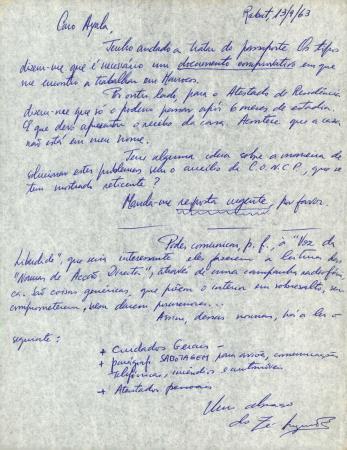 Rabat, 13/9/63
Caro Ayala,
Tenho andado a tratar do passaporte. Os tipos
dizem-me que é necessário um documento comprovativo em que
me encontro a trabalhar em Marrocos.
Por outro lado, para o Atestado de Residência
dizem-me que só o podem passar após 6 meses de estadia.
E que devo apresentar o recibo da casa. Acontece que a casa
não está em meu nome.
Tens alguma ideia sobre a maneira de
solucionar estes problemas sem o auxílio da C.O.N.C.P., que se
tem mostrado reticente?
Manda-me resposta urgente, por favor.
Podes comunicar, p. f., à "Voz da
Liberdade", que seria interessante eles fazerem a leitura das
"Normas de Acção Directa", através de uma campanha radiofóni-
ca. São coisas genéricas, que põem o inimigo em sobressalto, sem
comprometerem, nem darem pormenores...
Assim, dessas normas, há a ler o
seguinte:
+ Cuidados Gerais -
+ parágrafo SABOTAGEM para assoc, comunicações
telefónicas, incêndios e automóveis
+ Atentados pessoais
Um abraço
do Zé